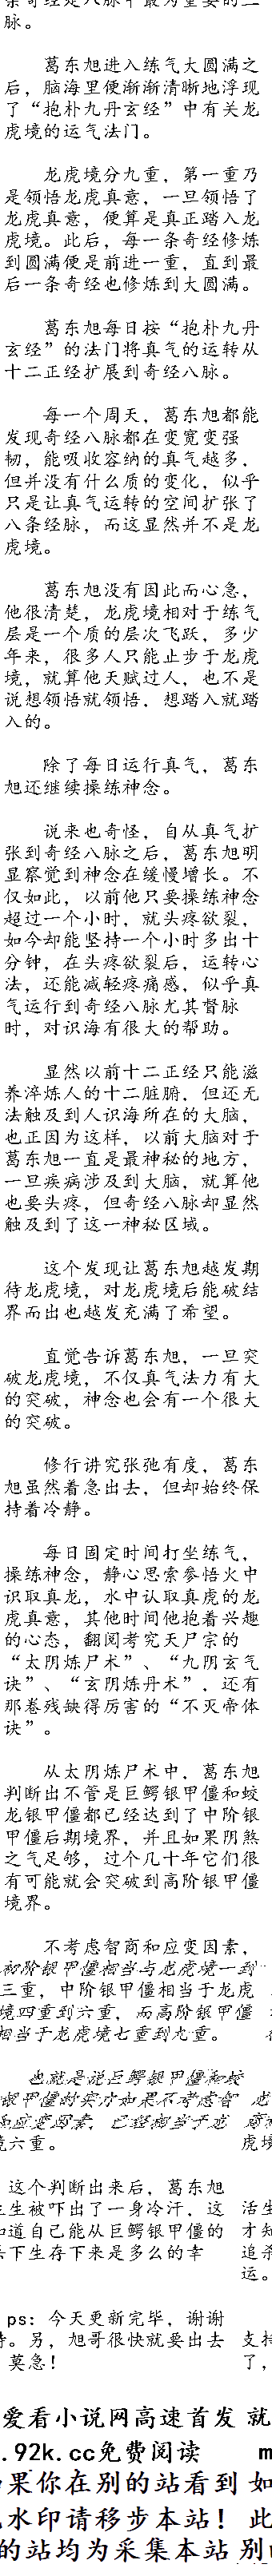 脉。
葛东旭进入练气大圆满之
后，脑海里便渐渐清晰地浮现
了“抱朴九丹玄经”中有关龙
虎境的运气法门。
龙虎境分九重，第一重乃
是领悟龙虎真意，一旦领悟了
龙虎真意，便算是真正踏入龙
虎境。此后，每一条奇经修炼
到圆满便是前进一重，直到最
后一条奇经也修炼到大圆满。
葛东旭每日按“抱朴九丹
玄经”的法门将真气的运转从
十二正经扩展到奇经八脉。
每一个周天，葛东旭都能
发现奇经八脉都在变宽变强
韧，能吸收容纳的真气越多，
但并没有什么质的变化，似乎
只是让真气运转的空间扩张了
八条经脉，而这显然并不是龙
虎境。
葛东旭没有因此而心急，
他很清楚，龙虎境相对于练气
层是一个质的层次飞跃，多少
年来，很多人只能止步于龙虎
境，就算他天赋过人，也不是
说想领悟就领悟，想踏入就踏
入的。
除了每日运行真气，葛东
旭还继续操练神念。
说来也奇怪，自从真气扩
张到奇经八脉之后，葛东旭明
显察觉到神念在缓慢增长。不
仅如此，以前他只要操练神念
超过一个小时，就头疼欲裂，
如今却能坚持一个小时多出十
分钟，在头疼欲裂后，运转心
法，还能减轻疼痛感，似乎真
气运行到奇经八脉尤其督脉
时，对识海有很大的帮助。
显然以前十二正经只能滋
养淬炼人的十二脏腑，但还无
法触及到人识海所在的大脑，
也正因为这样，以前大脑对于
葛东旭一直是最神秘的地方，
一旦疾病涉及到大脑，就算他
也要头疼，但奇经八脉却显然
触及到了这一神秘区域。
这个发现让葛东旭越发期
待龙虎境，对龙虎境后能破结
界而出也越发充满了希望。
直觉告诉葛东旭，一旦突
破龙虎境，不仅真气法力有大
的突破，神念也会有一个很大
的突破。
修行讲究张弛有度，葛东
旭虽然着急出去，但却始终保
持着冷静。
每日固定时间打坐练气，
操练神念，静心思索参悟火中
识取真龙，水中认取真虎的龙
虎真意，其他时间他抱着兴趣
的心态，翻阅考究天尸宗的
“太阴炼尸术”、“九阴玄气
诀”、“玄阴炼丹术”，还有
那卷残缺得厉害的“不灭帝体
诀”。
从太阴炼尸术中，葛东旭
判断出不管是巨鳄银甲僵和蛟
龙银甲僵都已经达到了中阶银
甲僵后期境界，并且如果阴煞
之气足够，过个几十年它们很
有可能就会突破到高阶银甲僵
境界。
不考虑智商和应变因素，
初阶银甲僵相当与龙虎境一到
三重，中阶银甲僵相当于龙虎
境四重到六重，而高阶银甲僵
相当于龙虎境七重到九重。
也就是说巨鳄银甲僵和蛟
银甲僵的实力如果不考虑智
应变因素，已经相当于龙
六重。 虎境
这个判断出来后，葛东旭
生被吓出了一身冷汗，这 活生
道自己能从巨鳄银甲僵的 才知
下生存下来是多么的幸 追杀
运。
ps：今天更新完毕，谢谢
。另，旭哥很快就要出去 支持
莫急！ 了，
爱看小说网高速首发 就
.92k.cc免费阅读 m
果你在别的站看到 如
水印请移步本站！ 此
的站均为采集本站 别